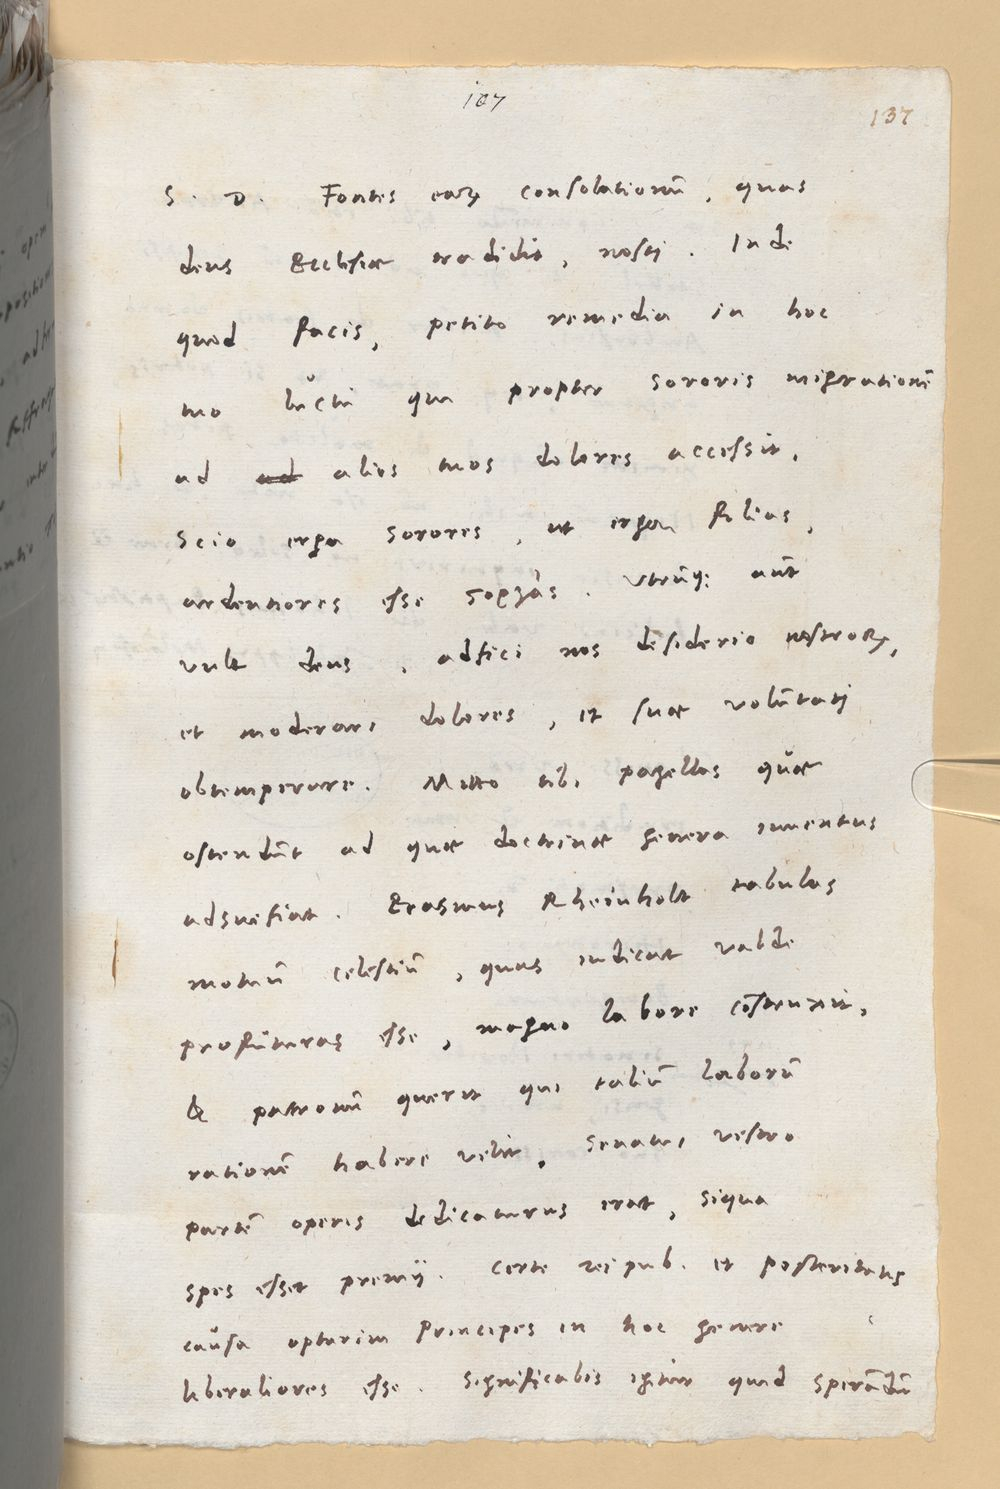 107
137
S. D. Fontes earꝝ consolationū, quas
deus Ecclesiae tradidit, nosti. Inde
quod facis, petito remedia in hoc
tuo luctu qui propter sororis migrationē
ad ad alios tuos dolores accessit.
Scio erga sorores, ut erga filias,
ardentiores esse
vult deus, adfici nos desiderio nostroꝝ,
et moderari dolores, et suae volūtati
obtemperare. Mitto tibi pagellas quae
ostendūt ad quae doctrinae genera iuventus
adsuefiat. Erasmus Rheinholt tabulas
motuū celestiū, quas iudicat valde
profuturas esse, magno labore cōstruxit,
& patronū quaerit qui taliū laborū
rationē habere velit, Senatui vestro
partē operis dedicaturus erat, siqua
spes esset premij. Certe reipub. et posteritatis
causa optarim Principes in hoc genere
liberaliores esse. Significabis igitur quid sperādū